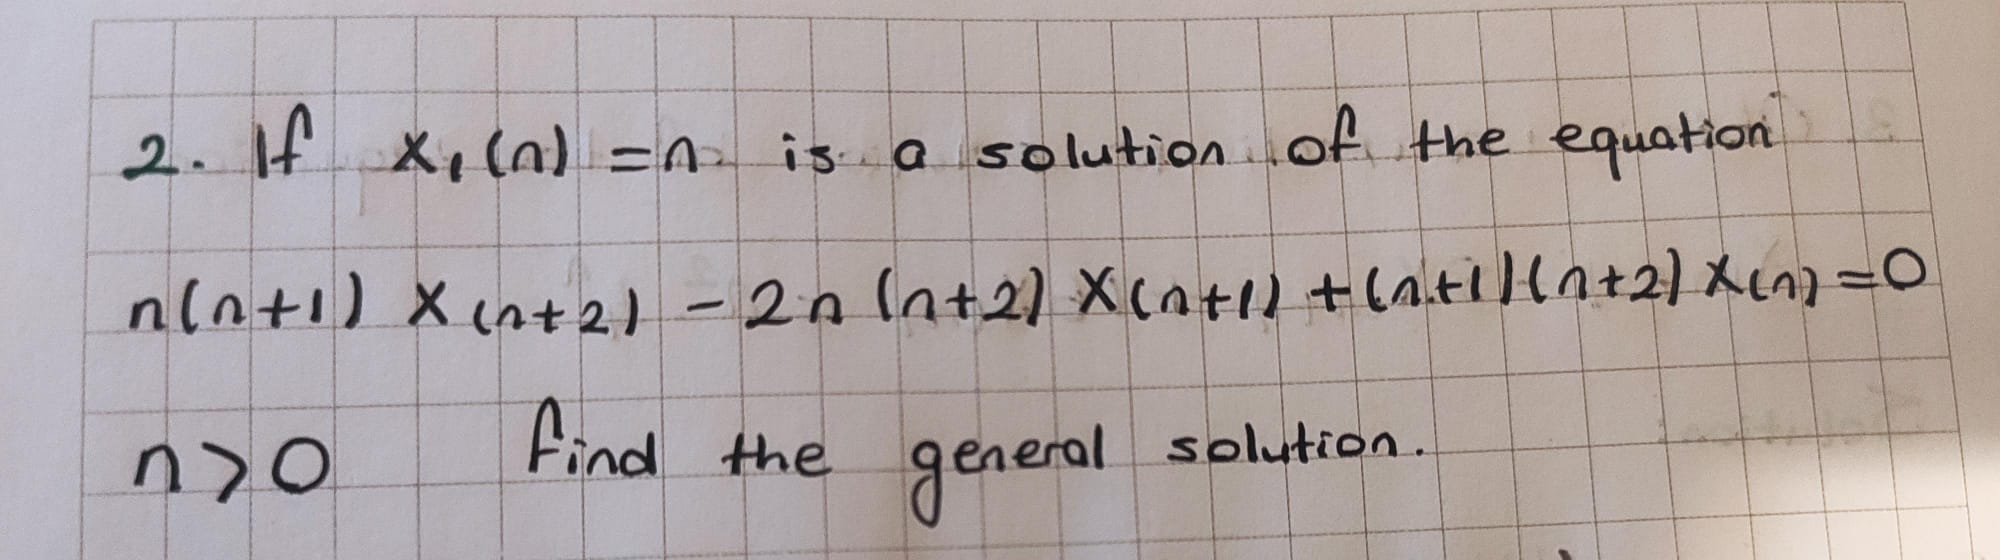 2. If x₁(n) = n is a solution of the equation
n(n+1) x(n+2) - 2n (n+2) x(n+1) + (n+1)(n+2) x(n) = 0
n > 0 find the general solution.